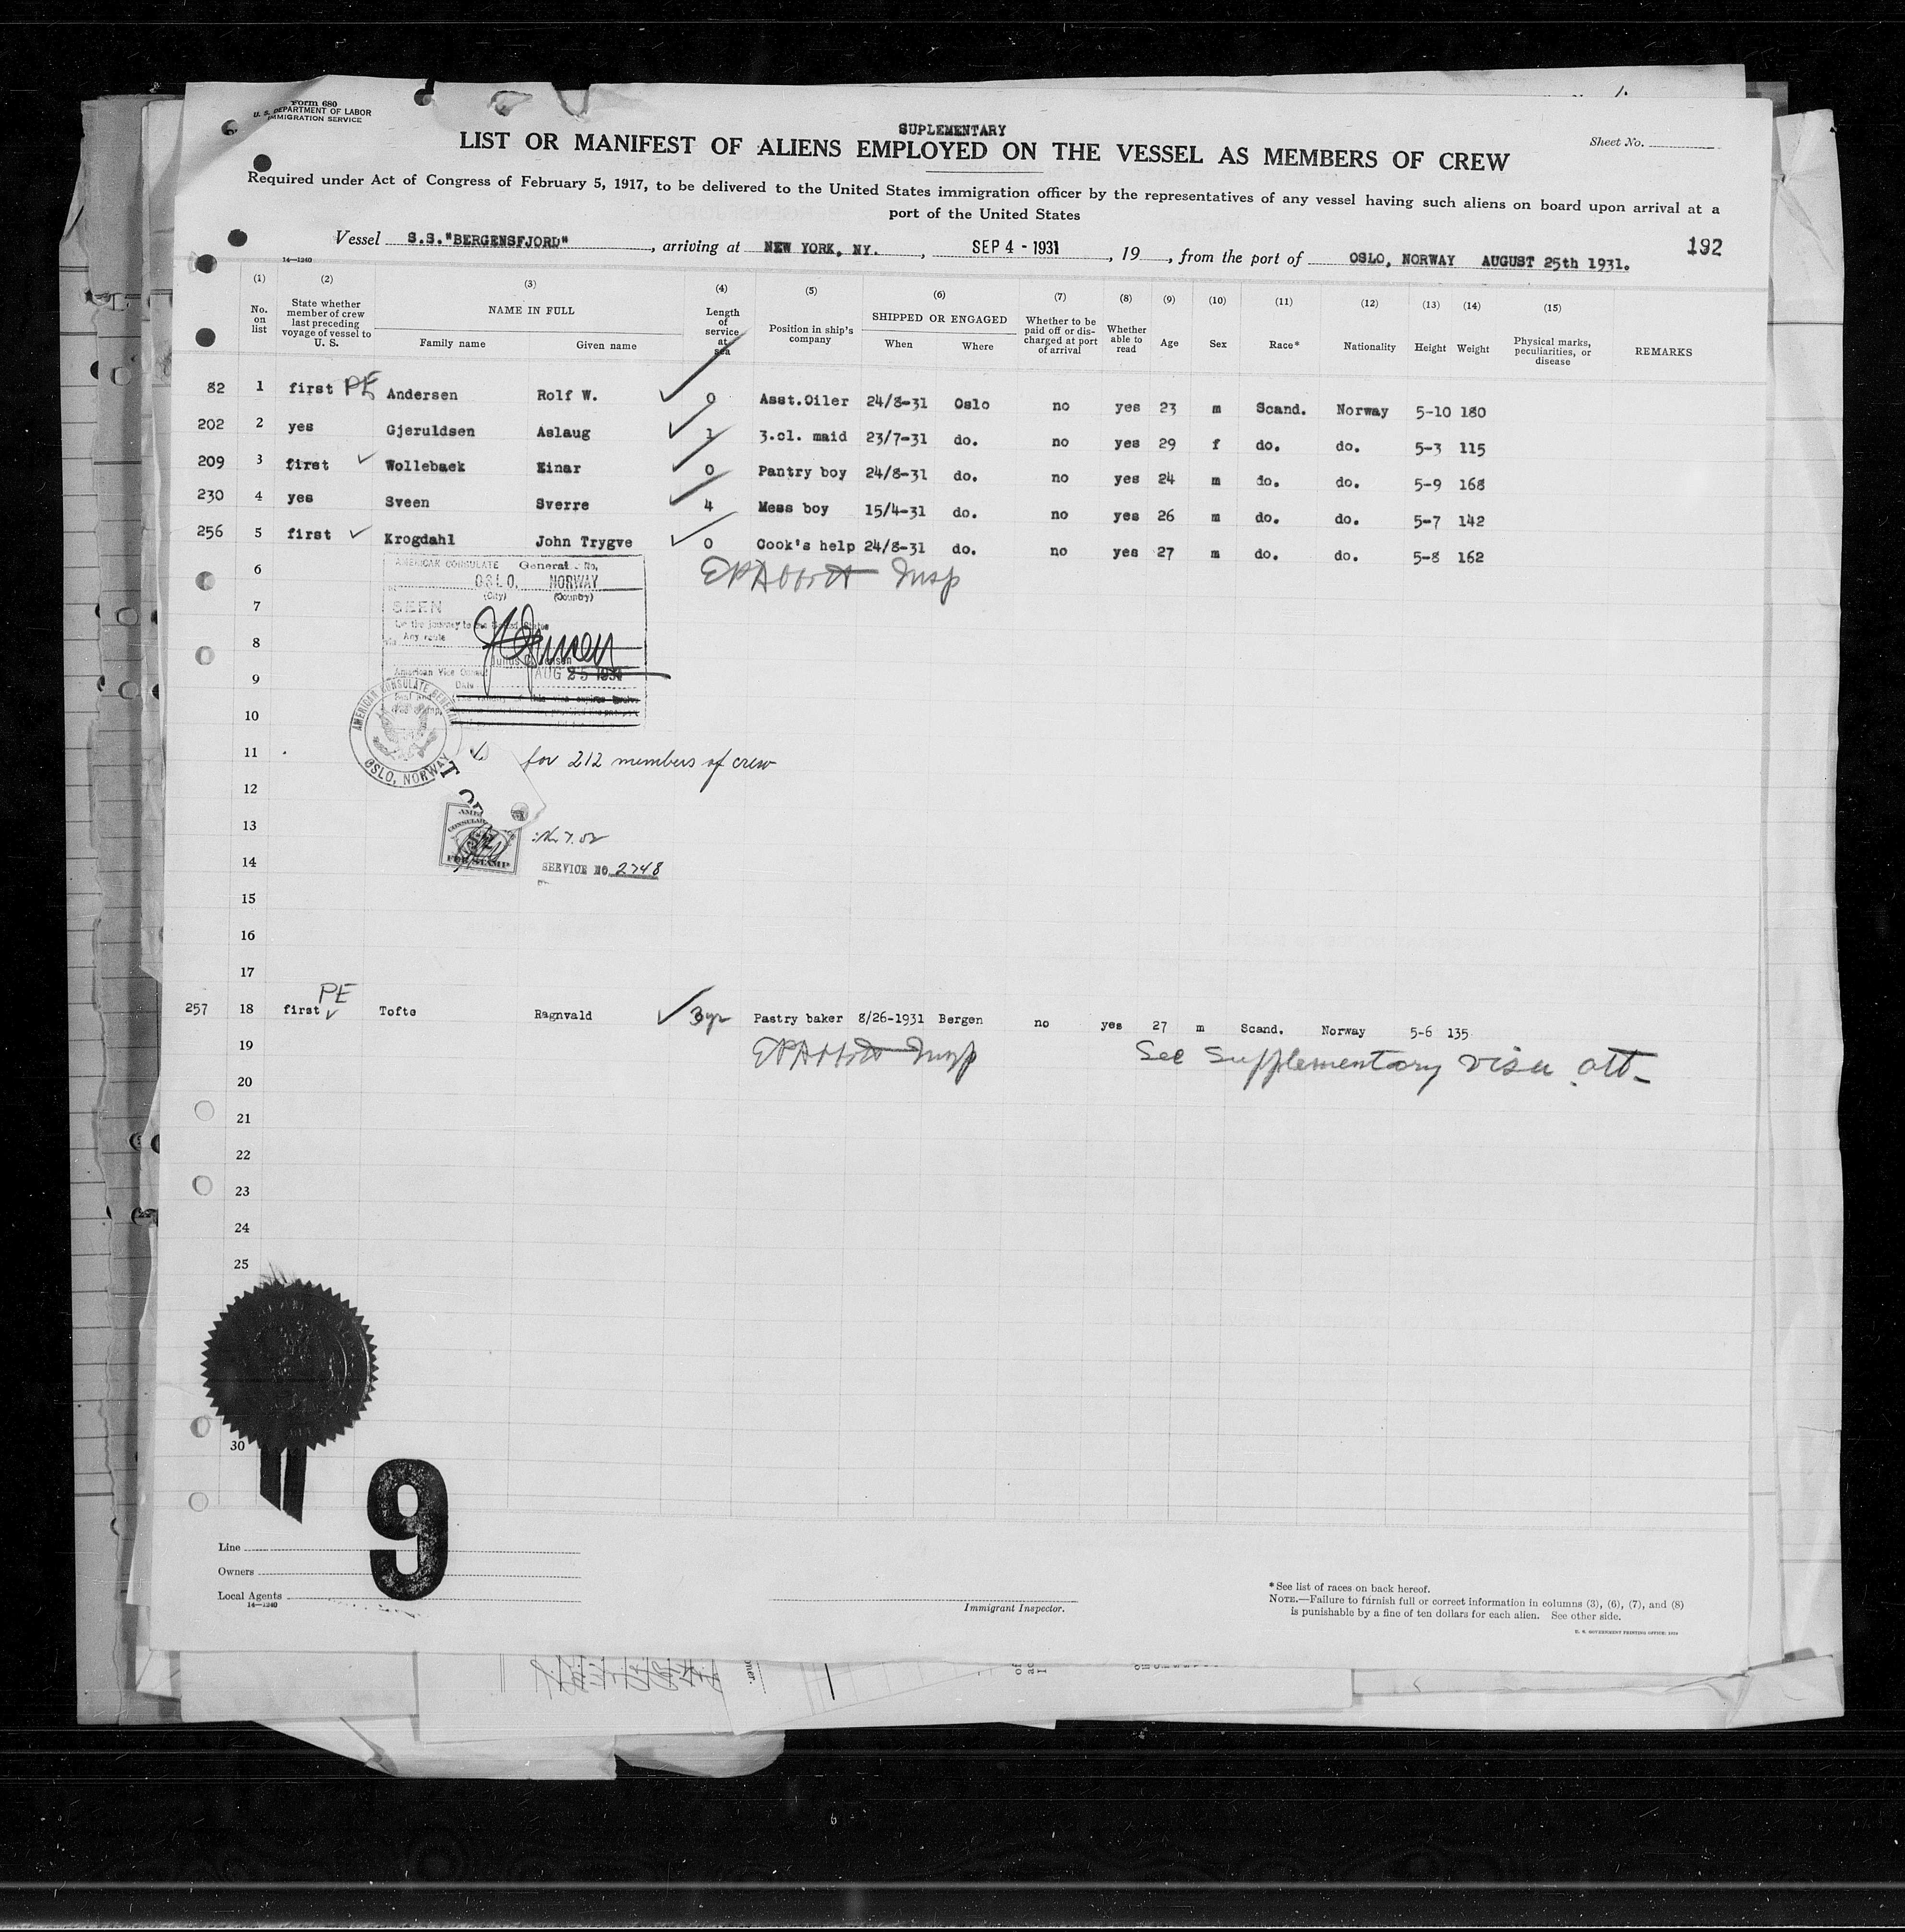 Form 680
U. S. DEPARTMENT OF LABOR
IMMIGRATION SERVICE
SUPLEMENTARY
LIST OR MANIFEST OF ALIENS EMPLOYED ON THE VESSEL AS MEMBERS OF CREW
Sheet No.
Required under Act of Congress of February 5, 1917, to be delivered to the United States immigration officer by the representatives of any vessel having such aliens on board upon arrival at a
port of the United States
Vessel S.S."BERGENSFJORD", arriving at NEW YORK, NY., SEP 4 - 1931, 19, from the port of OSLO, NORWAY AUGUST 25th 1931.
192
14—1240
(1) (2) (3) (4) (5) (6) (7) (8) (9) (10) (11) (12) (13) (14) (15)
No. on list
State whether member of crew last preceding voyage of vessel to U. S.
NAME IN FULL
Family name
Given name
Length of service at sea
Position in ship's company
SHIPPED OR ENGAGED
When
Where
Whether to be paid off or discharged at port of arrival
Whether able to read
Age
Sex
Race*
Nationality
Height
Weight
Physical marks, peculiarities, or disease
REMARKS
82 1 first PE Andersen Rolf W. 0 Asst.Oiler 24/8-31 Oslo no yes 23 m Scand. Norway 5-10 180
202 2 yes Gjeruldsen Aslaug 1 3.cl. maid 23/7-31 do. no yes 29 f do. do. 5-3 115
209 3 first Wollebaek Einar 0 Pantry boy 24/8-31 do. no yes 24 m do. do. 5-9 168
230 4 yes Sveen Sverre 4 Mess boy 15/4-31 do. no yes 26 m do. do. 5-7 142
256 5 first Krogdahl John Trygve 0 Cook's help 24/8-31 do. no yes 27 m do. do. 5-8 162
6
AMERICAN CONSULATE General No,
OSLO, NORWAY
(City) (Country)
EPAbbott Insp
7
SEEN
For the journey to the United States
Any route
8
9
American Vice Consul
AUG 25 1931
Date
10
AMERICAN CONSULATE GENERAL
OSLO, NORWAY
11
for 212 members of crew
12
13
14
FEE STAMP
SERVICE NO 2748
15
16
17
PE
257 18 first Tofte Ragnvald 3yr Pastry baker 8/26-1931 Bergen no yes 27 m Scand. Norway 5-6 135
19
EPAbbott Insp
See Supplementary visa att-
20
21
22
23
24
25
30
9
Line
Owners
Local Agents
14—1240
Immigrant Inspector.
*See list of races on back hereof.
NOTE.—Failure to furnish full or correct information in columns (3), (6), (7), and (8)
is punishable by a fine of ten dollars for each alien. See other side.